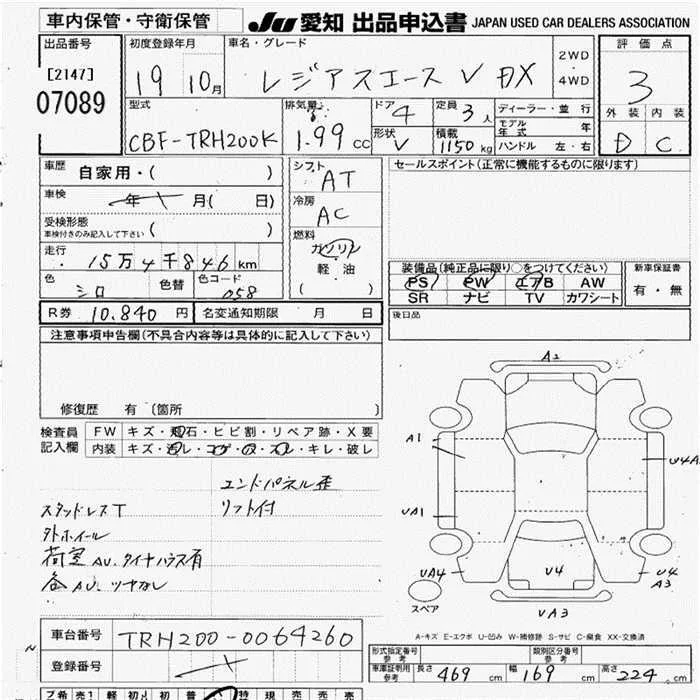 車内保管・守衛保管
JU 愛知 出品申込書 JAPAN USED CAR DEALERS ASSOCIATION
出品番号
[2147]
07089
初度登録年月
19 10月
車名・グレード
レジアスエース V DX
2WD
4WD
評価点
3
外装 内装
D C
型式
CBF-TRH200K
排気量
1.99 cc
ドア
4
形状
V
定員
3人
積載
1150 kg
ディーラー・並行
モデル年式 年
ハンドル 左・右
車歴
自家用・( )
車検
年 月( 日)
受検形態
車検付きのみ記入して下さい ( )
走行
15万4千846km
色
シロ
色替
色コード
058
シフト
AT
冷房
AC
燃料
ガソリン
軽・油
( )
セールスポイント(正常に機能するものに限ります)
装備品(純正品に限り○をつけてください)
PS PW エアB AW
SR ナビ TV カワシート
新車保証書
有・無
R券 10.840 円
名変通知期限 月 日
後日品
注意事項申告欄(不具合内容等は具体的に記入して下さい)
修復歴 有〔箇所 〕
検査員
記入欄
FW キズ・飛石・ヒビ割・リペア跡・X要
内装 キズ・汚レ・コゲ・穴・スレ・キレ・破レ
エンドパネル歪
スタッドレスT
リフト付
外ホイール
荷室AU.タイヤハウス有
各AU.ツヤなし
A2
A1
U4A
UA1
UA4
U4
U4
A3
スペア
UA3
A-キズ E-エクボ U-凹み W-補修跡 S-サビ C-腐食 XX-交換済
車台番号
TRH200-0064260
登録番号
形式指定番号
参考
類別区分番号
参考
車庫証明用
参考
長さ 469 cm
幅 169 cm
高さ 224 cm